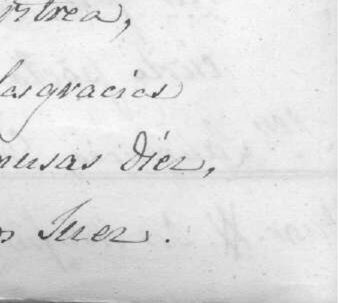 strea,
las gracias
musas diez,
os Juez.